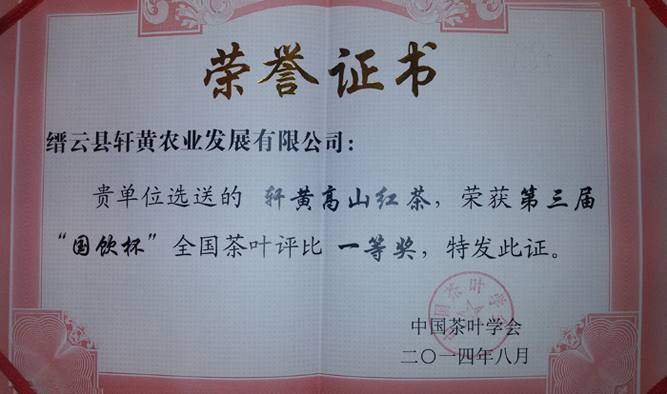 荣誉证书
缙云县轩黄农业发展有限公司：
贵单位选送的 轩黄高山红茶，荣获第三届
“国饮杯”全国茶叶评比 一等奖，特发此证。
中国茶叶学会
二〇一四年八月
中国茶叶学会